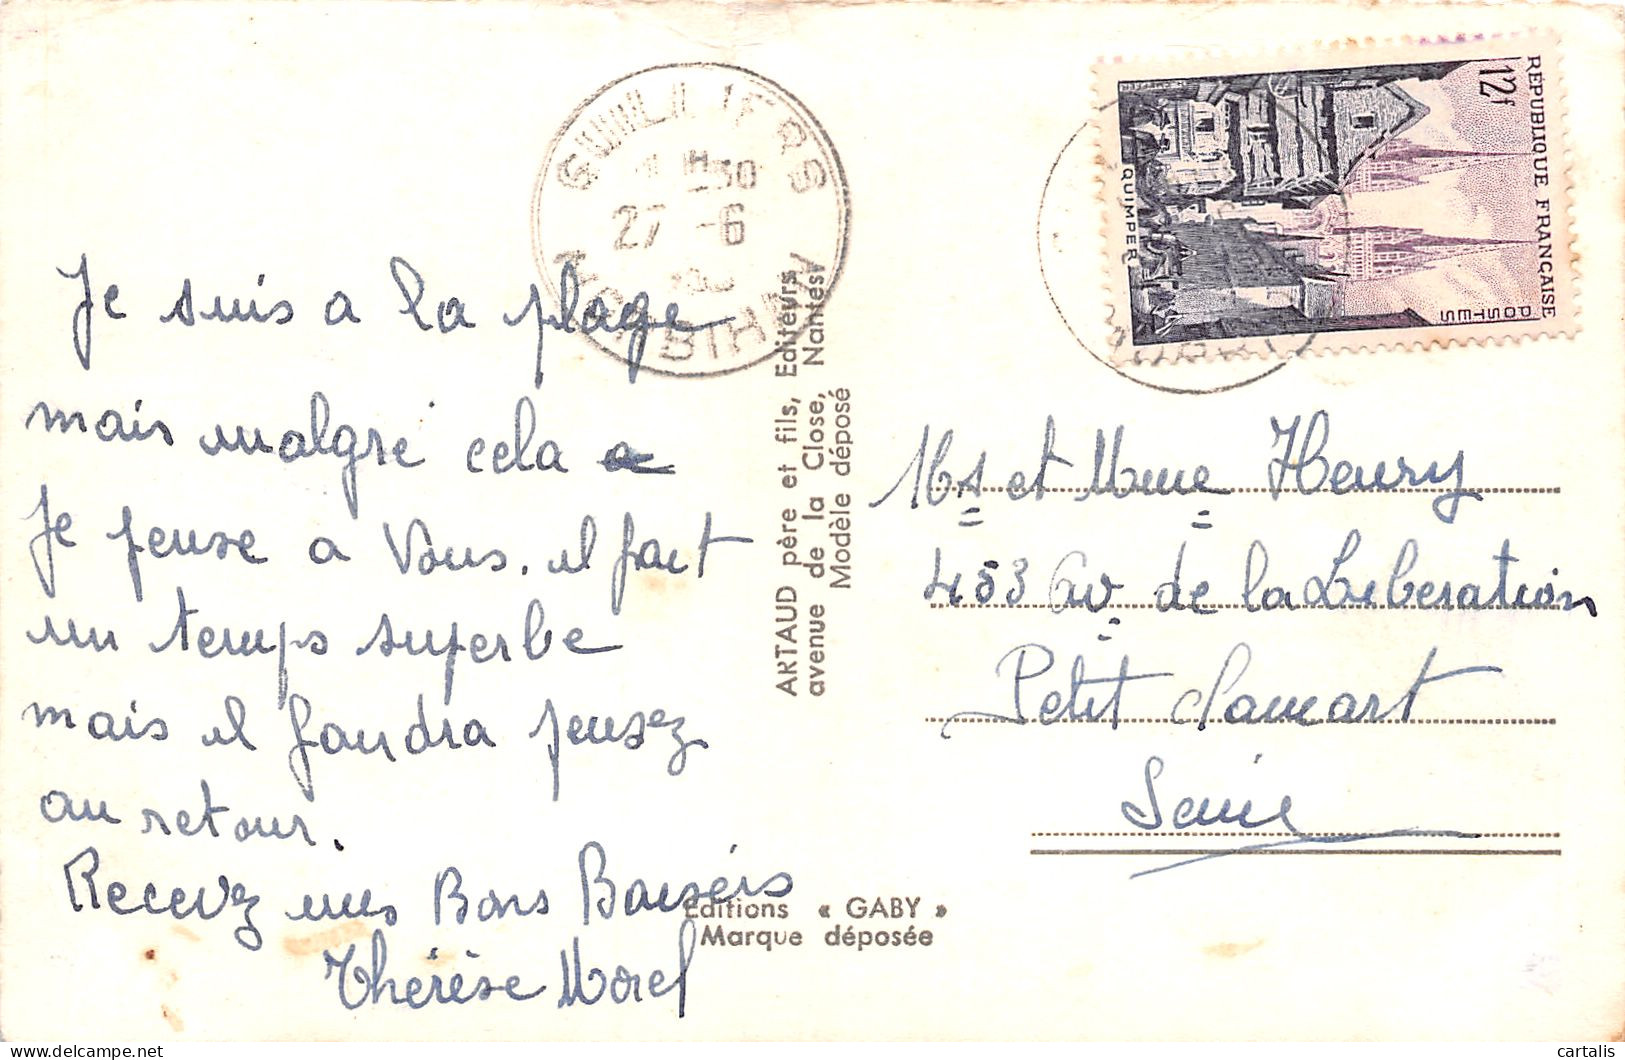 Je suis a la plage
mais malgré cela a
Je pense a Vous. il fait
un temps superbe
mais il faudra pensez
au retour.
Recevez mes Bons Baisérs
Thérèse Morel
GUILLIERS
27 -6
MORBIHAN
ARTAUD père et fils, Editeurs
avenue de la Close, Nantes
Modèle déposé
Editions « GABY »
Marque déposée
RÉPUBLIQUE FRANÇAISE
12f
POSTES
QUIMPER
Mr et Mme Henry
453 av de la Liberation
Petit Clamart
Seine
cartalis